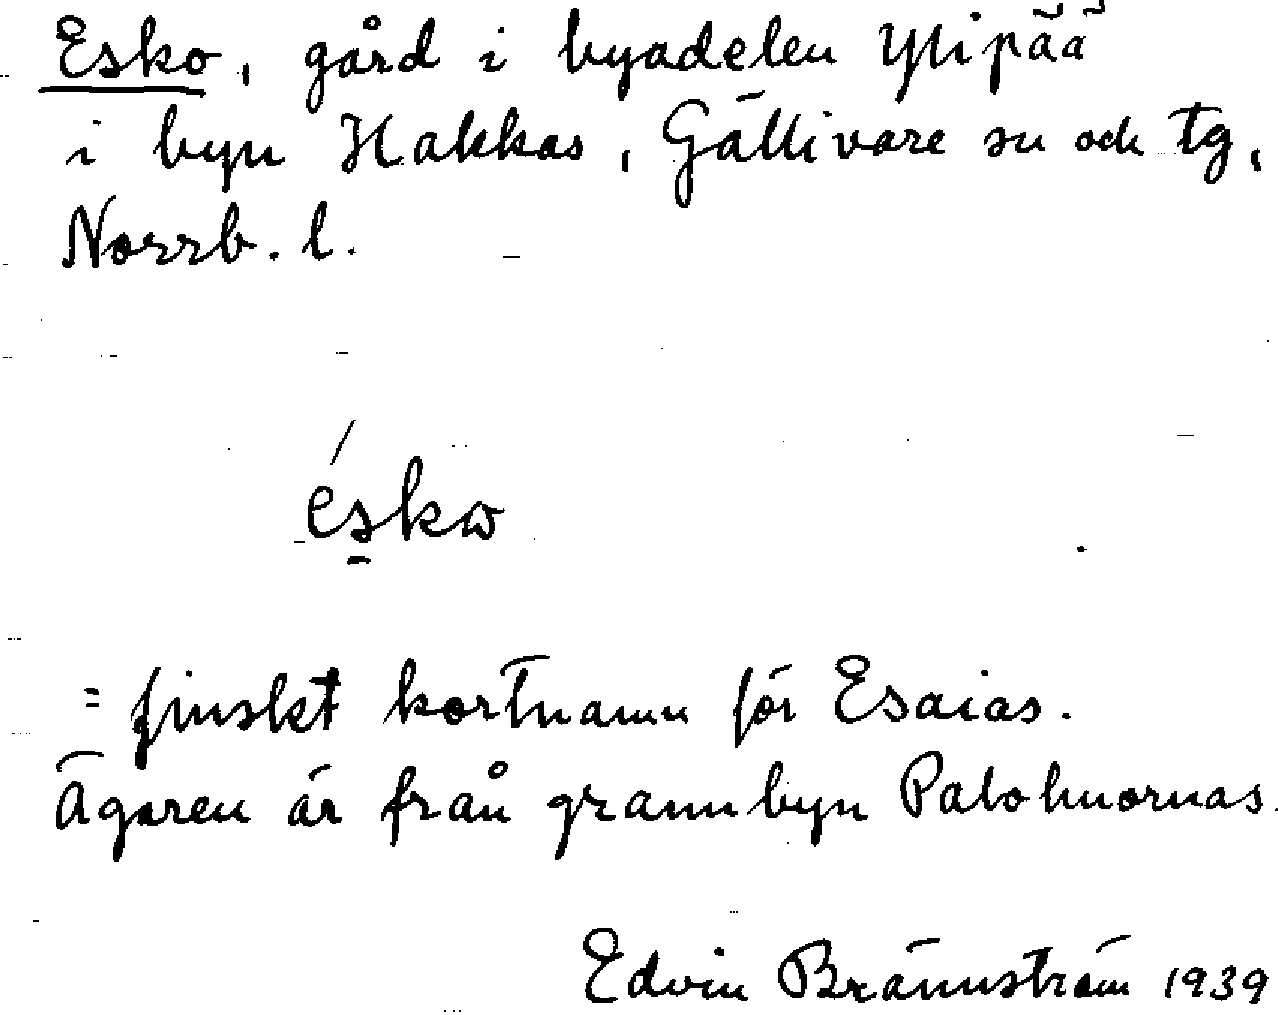 Esko, gård i byadelen Ylipää
i byn Hakkas, Gällivare sn och tg,
Norrb. l.
ésko
= finskt kortnamn för Esaias.
Ägaren är från grannbyn Palohuornas.
Edvin Brännström 1939